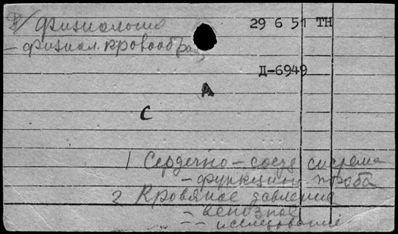 Физиология
29 6 51 ТН
– физиол. кровообращ
Д-6949
А
С
1 Сердечно – сосуд система
– функцион проба
2 Кровяное давление
– венозное
– исследование